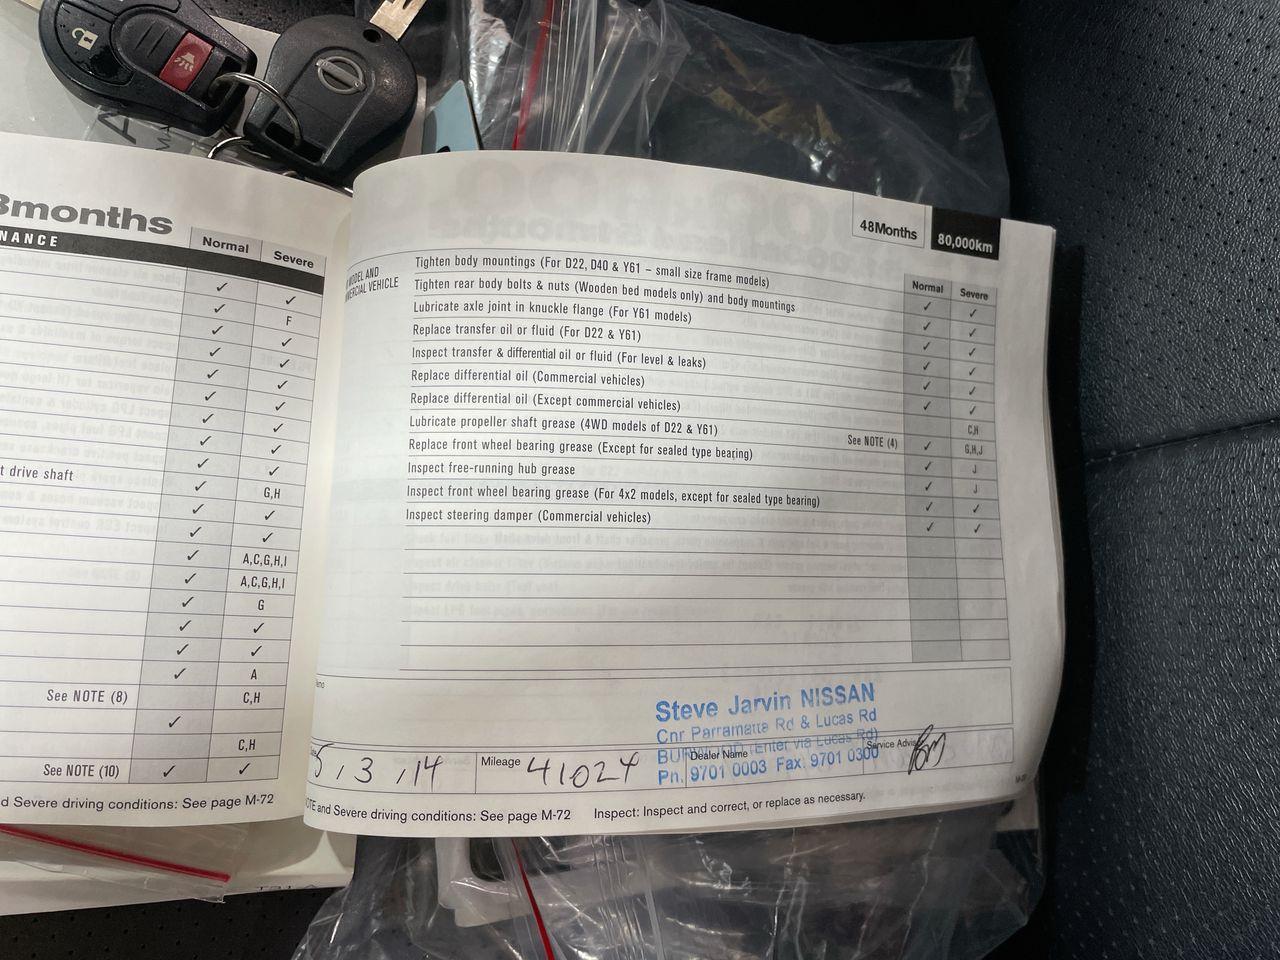 3months
NANCE
Normal Severe
✓ ✓
✓ F
✓ ✓
✓ ✓
✓ ✓
✓ ✓
✓ ✓
✓ ✓
t drive shaft ✓ G,H
✓ ✓
✓ ✓
✓ A,C,G,H,I
✓ A,C,G,H,I
✓ G
✓ ✓
✓ ✓
✓ A
See NOTE (8) C,H
✓
C,H
See NOTE (10) ✓ ✓
d Severe driving conditions: See page M-72
48Months 80,000km
MODEL AND
MERCIAL VEHICLE
Normal Severe
Tighten body mountings (For D22, D40 & Y61 – small size frame models) ✓ ✓
Tighten rear body bolts & nuts (Wooden bed models only) and body mountings ✓ ✓
Lubricate axle joint in knuckle flange (For Y61 models) ✓ ✓
Replace transfer oil or fluid (For D22 & Y61) ✓ ✓
Inspect transfer & differential oil or fluid (For level & leaks) ✓ ✓
Replace differential oil (Commercial vehicles) C,H
Replace differential oil (Except commercial vehicles)
Lubricate propeller shaft grease (4WD models of D22 & Y61) See NOTE (4) ✓ G,H,J
Replace front wheel bearing grease (Except for sealed type bearing) ✓ J
Inspect free-running hub grease ✓ J
Inspect front wheel bearing grease (For 4x2 models, except for sealed type bearing) ✓ ✓
Inspect steering damper (Commercial vehicles) ✓ ✓
Steve Jarvin NISSAN
Cnr Parramatta Rd & Lucas Rd
BURWOOD (Enter via Lucas Rd)
Pn. 9701 0003 Fax: 9701 0300
5, 3, 14
Mileage 41024
Dealer Name
Service Advis
NOTE and Severe driving conditions: See page M-72 Inspect: Inspect and correct, or replace as necessary.